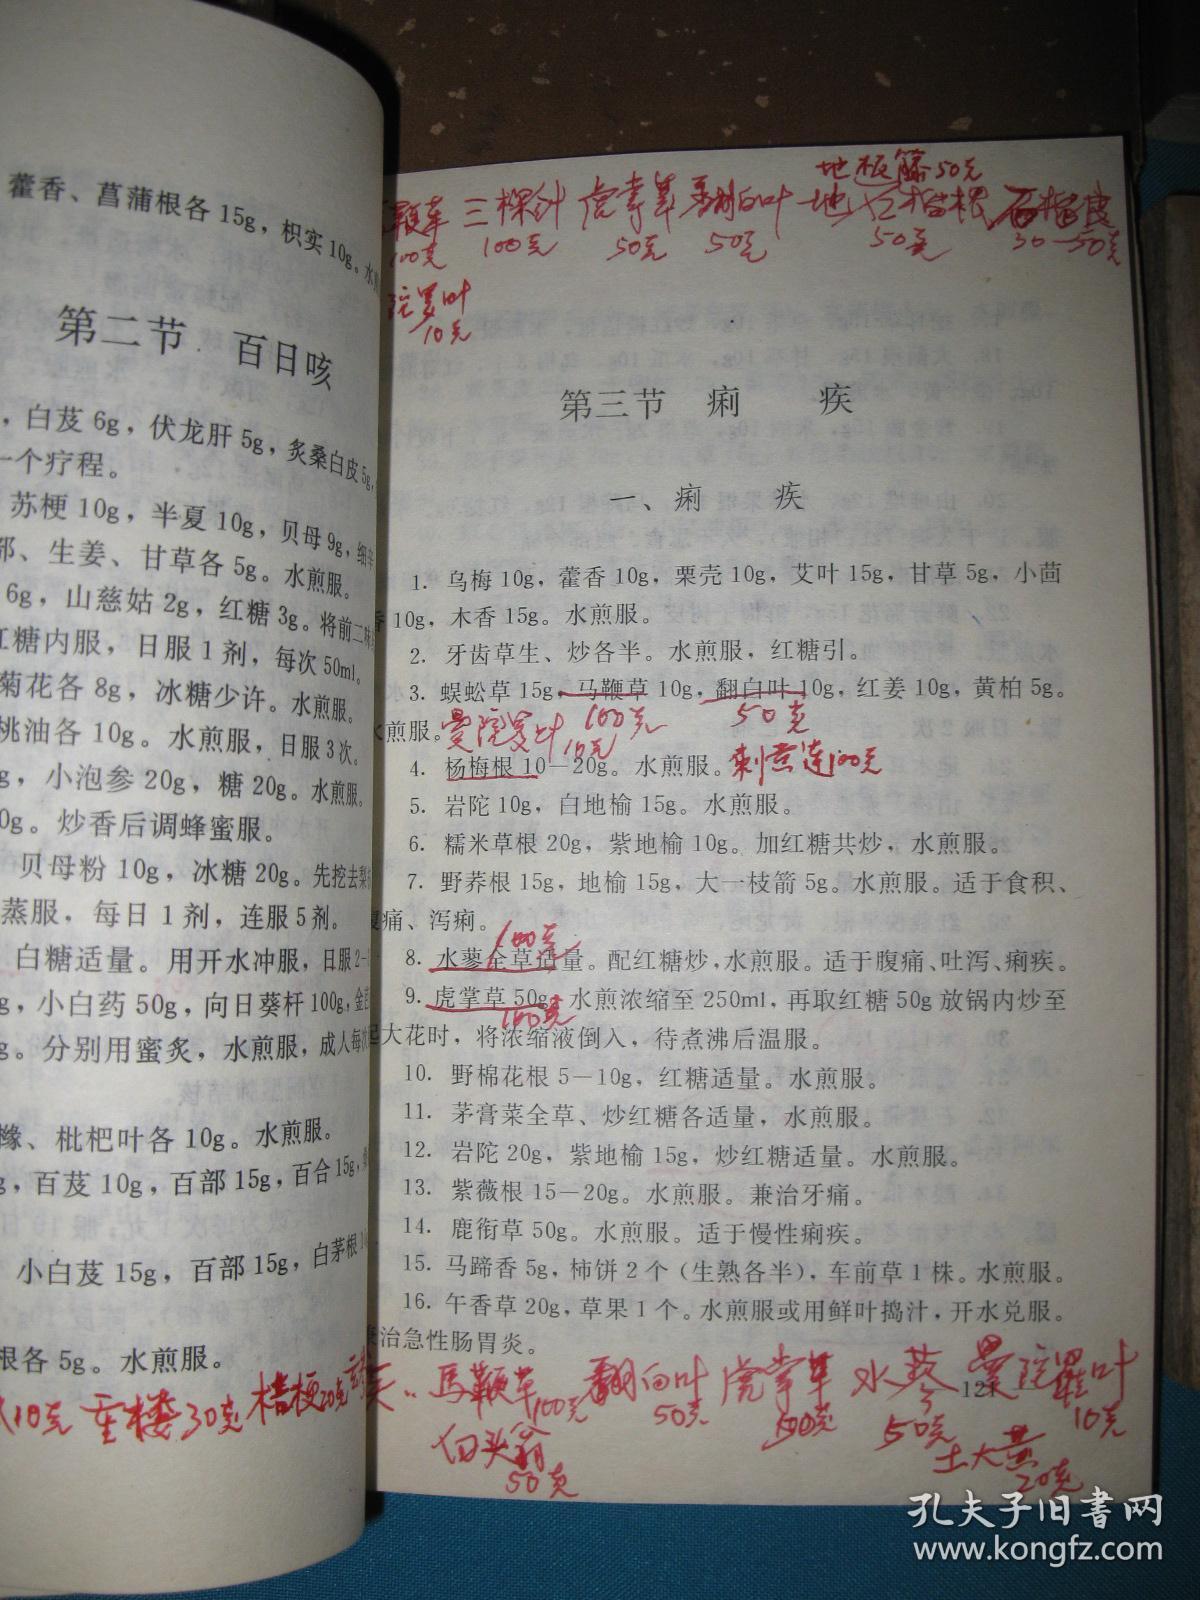 藿香、菖蒲根各15g，枳实10g。水
第二节 百日咳
，白芨6g，伏龙肝5g，炙桑白皮5g，
一个疗程。
苏梗10g，半夏10g，贝母9g，细辛
部、生姜、甘草各5g。水煎服。
6g，山慈姑2g，红糖3g。将前二味
红糖内服，日服1剂，每次50ml。
菊花各8g，冰糖少许。水煎服。
桃油各10g。水煎服，日服3次。
g，小泡参20g，糖20g。水煎服。
0g。炒香后调蜂蜜服。
贝母粉10g，冰糖20g。先挖去梨
蒸服，每日1剂，连服5剂。
白糖适量。用开水冲服，日服2-
g，小白药50g，向日葵杆100g，金
g。分别用蜜炙，水煎服，成人每次
橼、枇杷叶各10g。水煎服。
g，百芨10g，百部15g，百合15g，
小白芨15g，百部15g，白茅根1
根各5g。水煎服。
10克 重楼30克 桔梗20克
地板藤50克
鞭草 三棵针 虎掌草 翻白叶 地石榴根 石榴皮
100克 100克 50克 50克 50克 30—50克
陀罗叶
10克
第三节 痢 疾
一、痢 疾
1. 乌梅10g，藿香10g，栗壳10g，艾叶15g，甘草5g，小茴
香10g，木香15g。水煎服。
2. 牙齿草生、炒各半。水煎服，红糖引。
3. 蜈蚣草15g，马鞭草10g，翻白叶10g，红姜10g，黄柏5g。
水煎服。曼陀罗叶 100克 50克
10克
4. 杨梅根10—20g。水煎服。刺黄连100克
5. 岩陀10g，白地榆15g。水煎服。
6. 糯米草根20g，紫地榆10g。加红糖共炒，水煎服。
7. 野荞根15g，地榆15g，大一枝箭5g。水煎服。适于食积、
腹痛、泻痢。
100克
8. 水蓼全草适量。配红糖炒，水煎服。适于腹痛、吐泻、痢疾。
9. 虎掌草50g，水煎浓缩至250ml，再取红糖50g放锅内炒至
100克
起大花时，将浓缩液倒入，待煮沸后温服。
10. 野棉花根5—10g，红糖适量。水煎服。
11. 茅膏菜全草、炒红糖各适量，水煎服。
12. 岩陀20g，紫地榆15g，炒红糖适量。水煎服。
13. 紫薇根15—20g。水煎服。兼治牙痛。
14. 鹿衔草50g。水煎服。适于慢性痢疾。
15. 马蹄香5g，柿饼2个（生熟各半），车前草1株。水煎服。
16. 午香草20g，草果1个。水煎服或用鲜叶捣汁，开水兑服。
兼治急性肠胃炎。
馬鞭草 翻白叶 虎掌草 水蓼 曼陀羅叶
100克 50克 50克 10克
121
白头翁 土大黄
50克 20克
孔夫子旧书网
www.kongfz.com